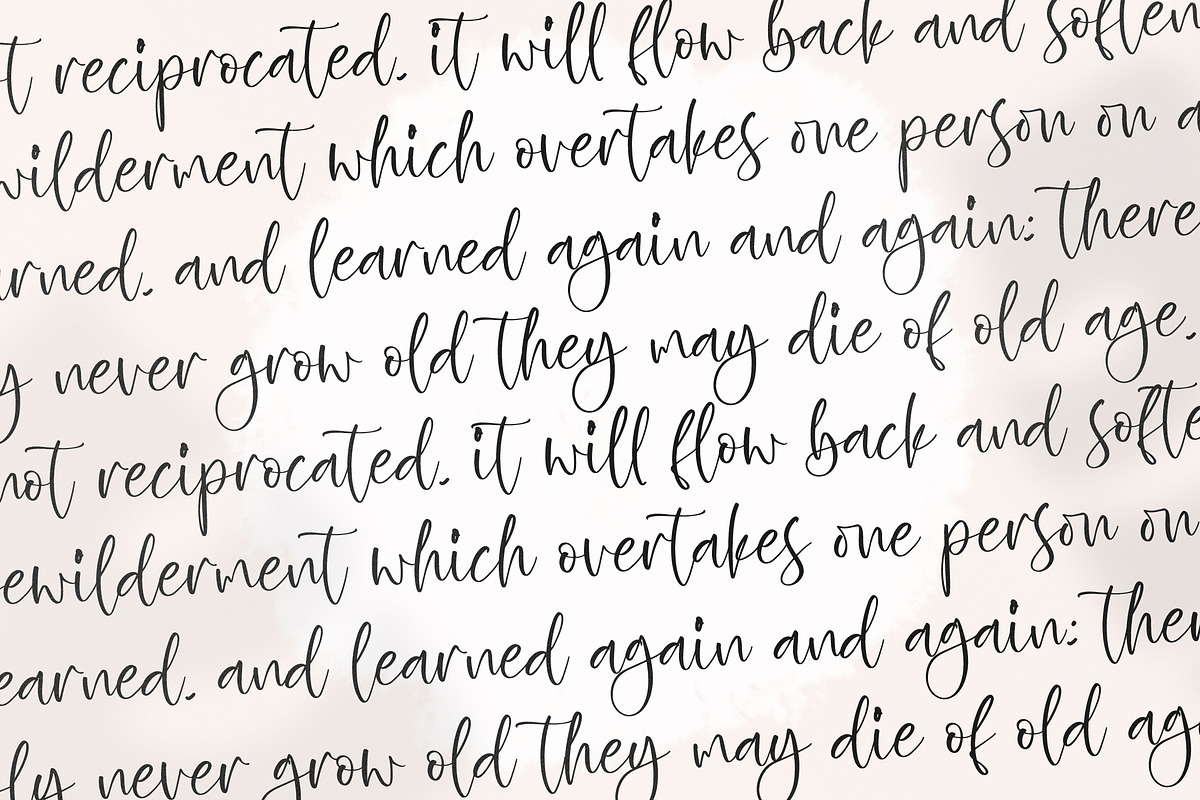 t reciprocated. it will flow back and soften
wilderment which overtakes one person on a
arned. and learned again and again: there
y never grow old they may die of old age.
not reciprocated. it will flow back and softe
ewilderment which overtakes one person on
earned. and learned again and again: ther
ly never grow old they may die of old ag